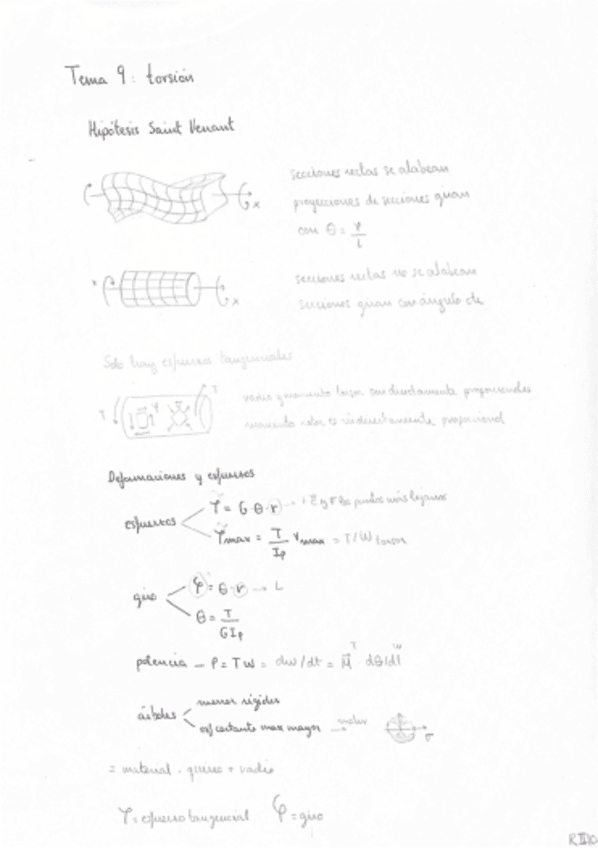 Tema 9: torsión
Hipótesis Saint Venant
secciones rectas se alabean
proyecciones de secciones giran
x
con θ = φ/L
secciones rectas no se alabean
x
x
secciones giran con ángulo de
Solo hay esfuerzos tangenciales
T T
radio y momento torsor son directamente proporcionales
momento polar es indirectamente proporcional
Deformaciones y esfuerzos
esfuerzos
τ = G·θ·r → puntos más lejanos
τmax = T/Ip rmax = T/W torsor
giro
φ = θ·r → L
θ = T/GIp
potencia – P = TW = dw/dt = M dθ/dt
T w
árboles
menor rígidos
esf cortante max mayor → mohr
σ
= material, + radio
τ = esfuerzo tangencial φ = giro